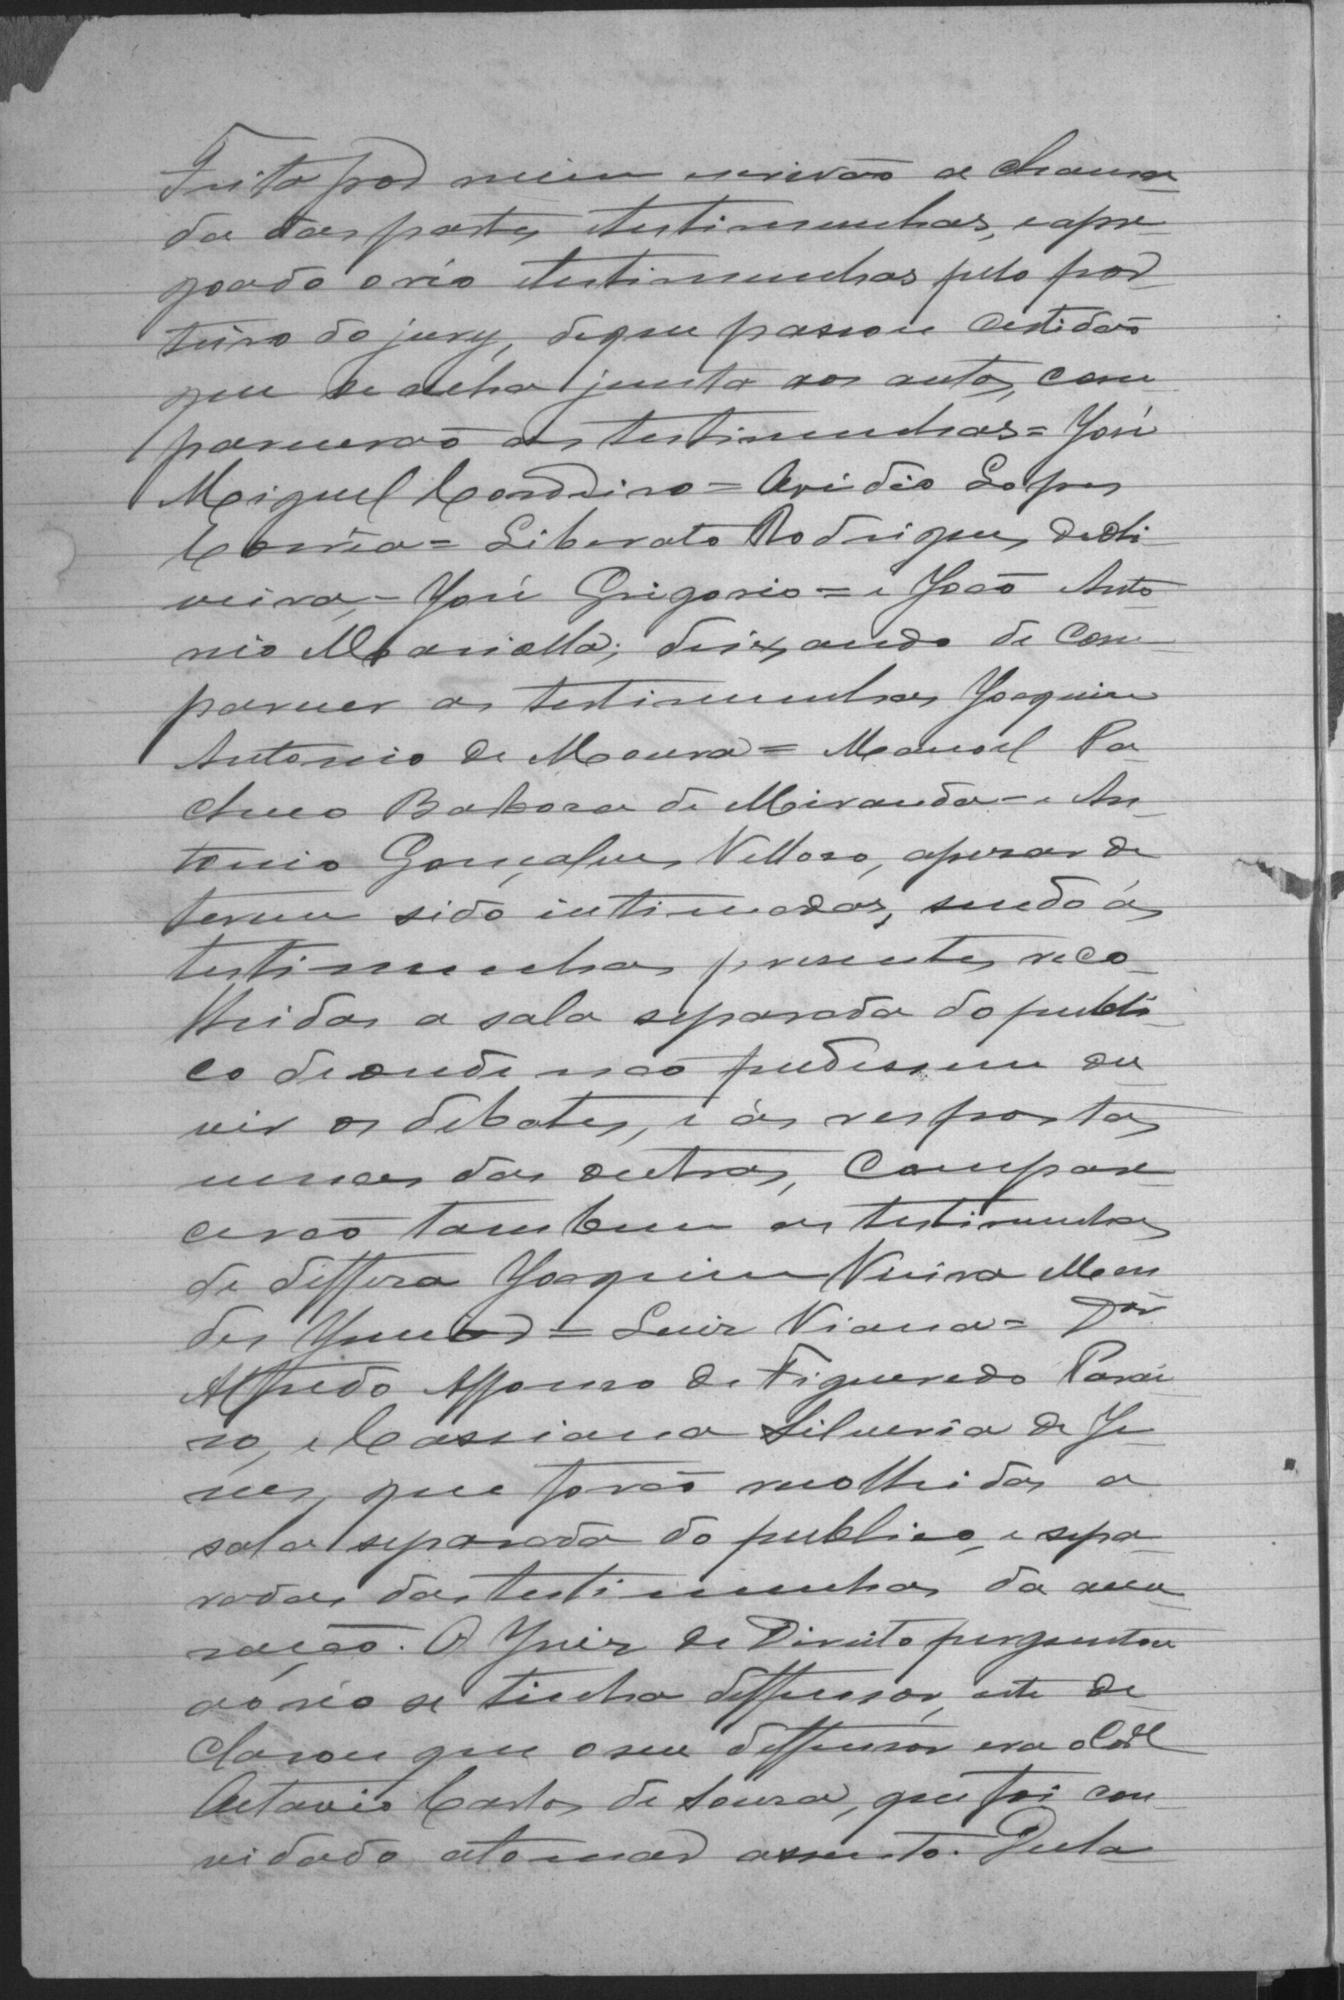 Feita por mim escrivão a chama-
da das partes e testimunhas, e apre-
goado o réo e testimunhas pelo por-
teiro do jury, de que passou certidão
que se acha junta aos autos, com-
parecerão as testimunhas = José
Miguel Cordeiro = Ovidio Lopes
Corrêa = Liberato Rodrigues de Oli-
veira, = José Grigorio = e João Anto-
nio Marialla; deixando de com-
parecer as testimunhas Joaquim
Antonio de Moura = Manoel Pa-
checo Barboza de Miranda = e An-
tonio Gonçalves Velloso, apesar de
terem sido intimadas, sendo ás
testimunhas presentes reco-
lhidas a sala separada do publi-
co de onde não pudessem ou-
vir os debates, e ás respostas
umas das outras, Compare-
cerão tambem as testimunhas
de deffeza Joaquim Vieira Men-
des Junior = Luiz Viana = Dor
Alfredo Affonso de Figueredo Parai-
so, e Cassiana Silveria de Je-
ses, que forão recolhidas a
sala separada do publico, e sepa-
radas das testimunhas da accu-
sação. O Juiz de Direito perguntou
ao réo se tinha deffensor, este de-
clarou que o seu deffensor era o Cel
Octavio Carlos de Souza, que foi con-
vidado a tomar assento. Pela